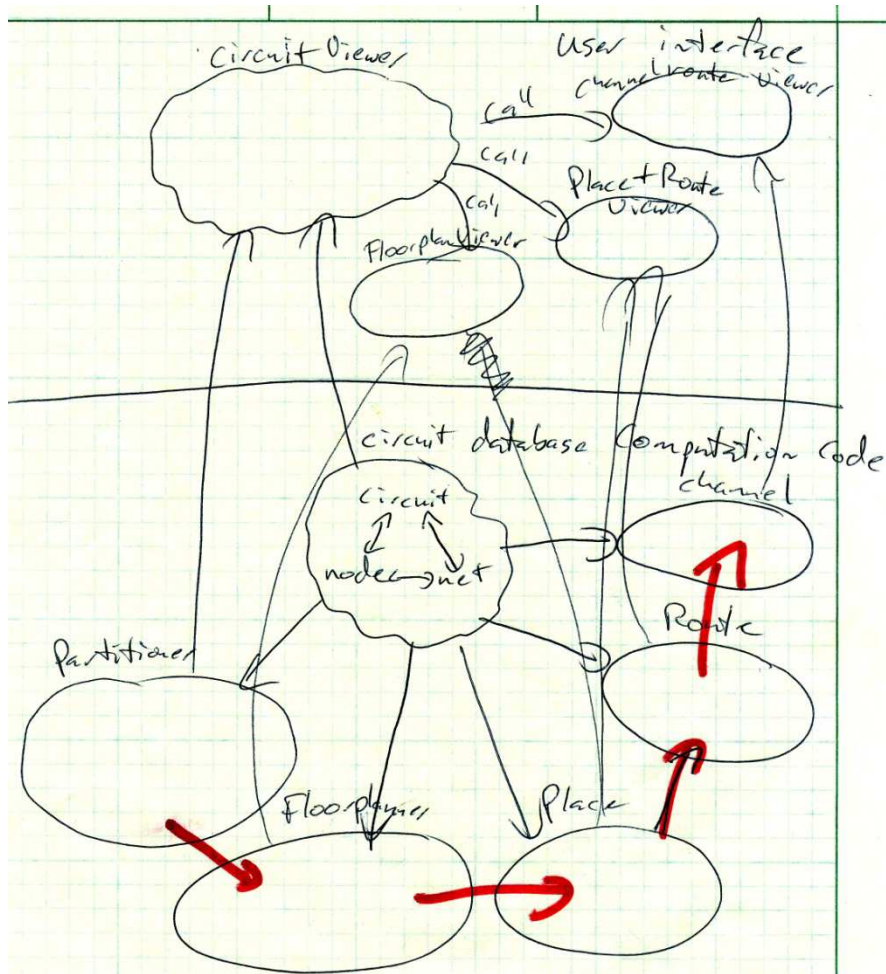 Circuit Viewer
User interface
channel route viewer
call
call
call
Place + Route
Viewer
Floorplan Viewer
circuit database
Computation Code
channel
circuit
node
net
Route
Partitioner
Floorplanner
Place